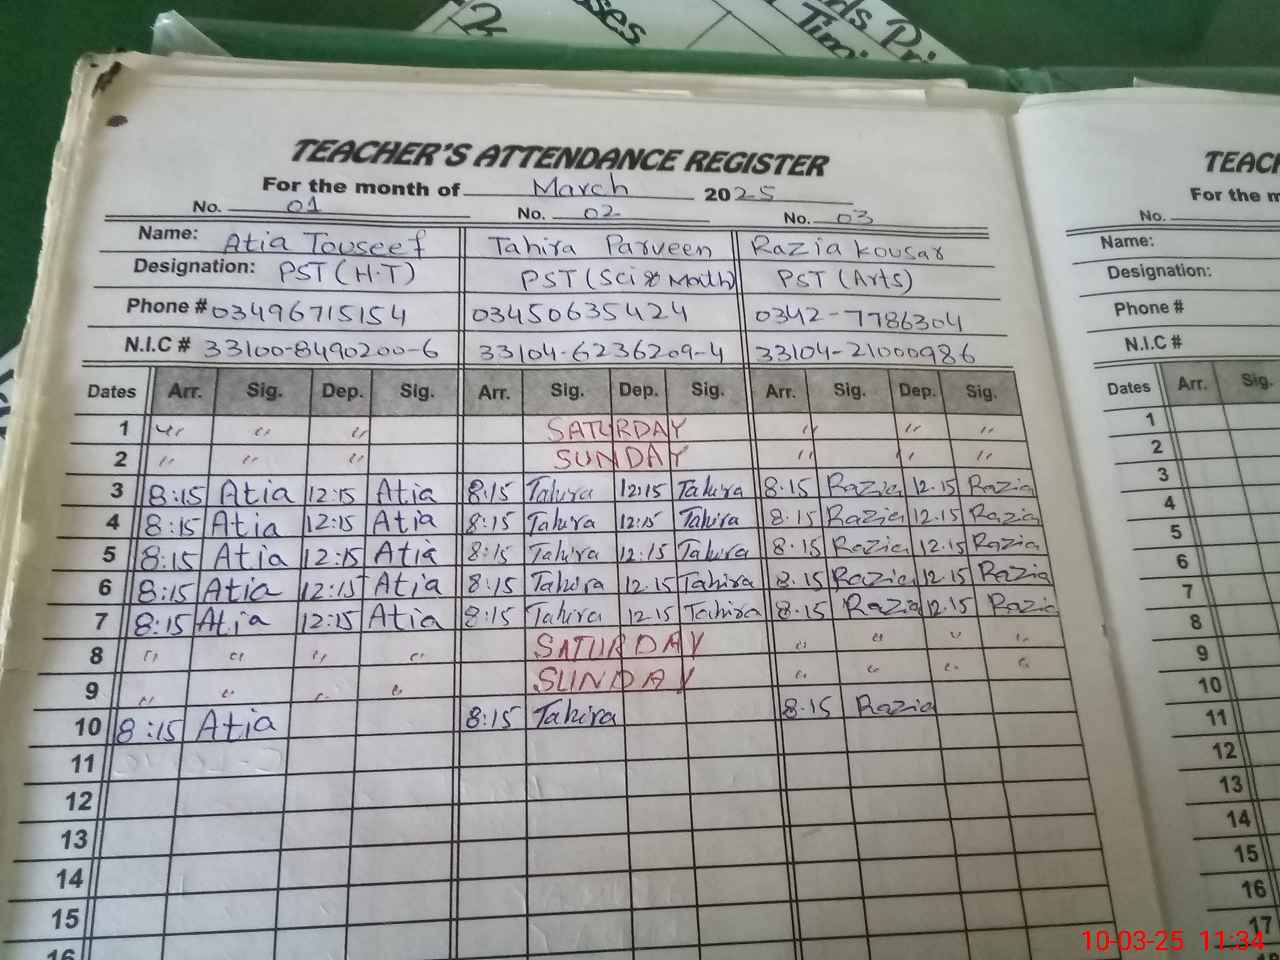 sses
ds Pri
Timi
TEACHER'S ATTENDANCE REGISTER
For the month of March 2025
No. 01 No. 02 No. 03
Name: Atia Touseef Tahira Parveen Razia Kousar
Designation: PST (H.T) PST (Sci & Math) PST (Arts)
Phone # 03496715154 03450635424 0342-7786304
N.I.C # 33100-8490200-6 33104-6236209-4 33104-21000986
Dates Arr. Sig. Dep. Sig. Arr. Sig. Dep. Sig. Arr. Sig. Dep. Sig.
1 " " " SATURDAY " " "
2 " " " SUNDAY " " "
3 8:15 Atia 12:15 Atia 8:15 Tahira 12:15 Tahira 8.15 Razia 12.15 Razia
4 8:15 Atia 12:15 Atia 8:15 Tahira 12:15 Tahira 8.15 Razia 12.15 Razia
5 8:15 Atia 12:15 Atia 8:15 Tahira 12:15 Tahira 8.15 Razia 12.15 Razia
6 8:15 Atia 12:15 Atia 8:15 Tahira 12.15 Tahira 8.15 Razia 12.15 Razia
7 8:15 Atia 12:15 Atia 8:15 Tahira 12.15 Tahira 8.15 Razia 12.15 Razia
8 " " " " SATURDAY " " " "
9 " " " " SUNDAY " " " "
10 8:15 Atia 8:15 Tahira 8.15 Razia
11
12
13
14
15
16
TEACH
For the m
No.
Name:
Designation:
Phone #
N.I.C #
Dates Arr. Sig.
1
2
3
4
5
6
7
8
9
10
11
12
13
14
15
16
17
10-03-25 11:34